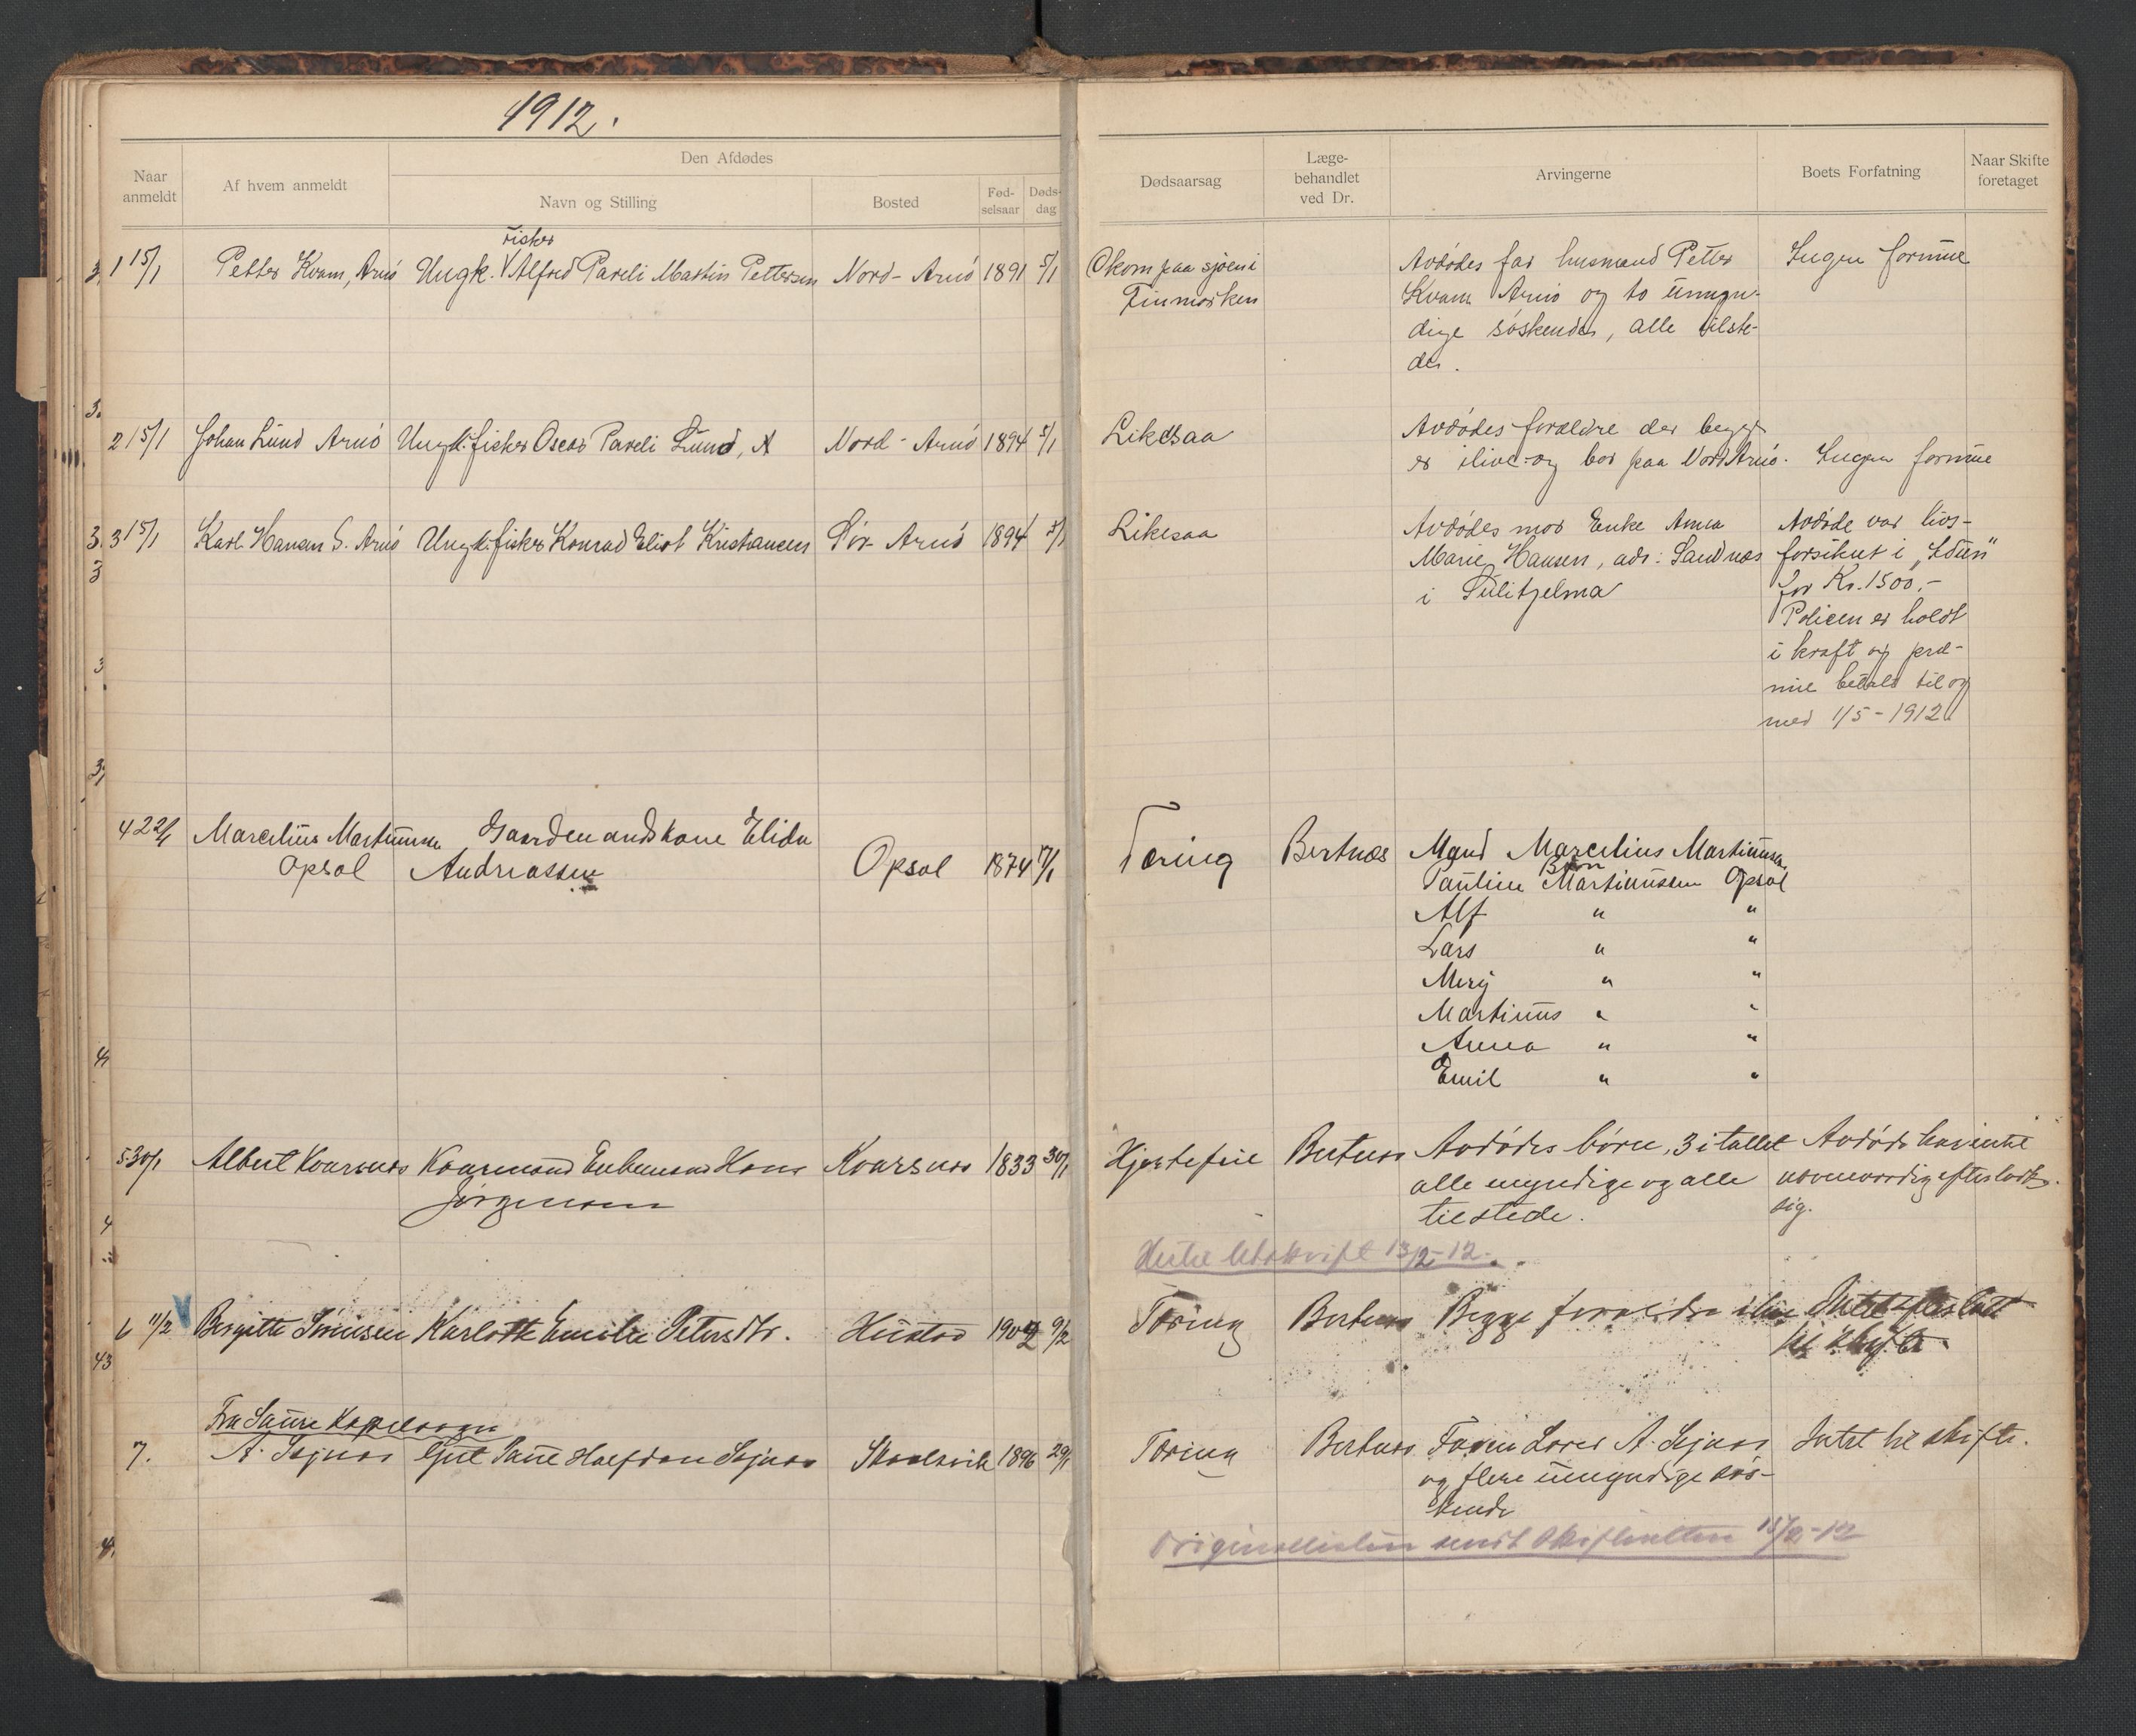 1912.
Naar anmeldt
Af hvem anmeldt
Den Afdødes
Navn og Stilling
Bosted
Fød-selsaar
Døds-dag
Dødsaarsag
Læge-behandlet ved Dr.
Arvingerne
Boets Forfatning
Naar Skifte foretaget
1 15/1 Petter Kvam, Arnö
fisker
Ungk. V Alfred Pareli Martin Pettersen Nord-Arnö 1891 5/1
Okom paa sjöen i
Finmarken
Avdödes far husmand Petter
Kvam Arnö og to umyn-
dige söskender, alle tilste-
de.
Ingen formue
2 15/1 Johan Lund Arnö Ungk. fisker Oscar Pareli Lund, A Nord-Arnö 1894 5/1
Likesaa
Avdödes forældre der begge
er ilive og bor paa Nord Arnö.
Ingen formue
3 15/1 Karl Hansen S. Arnö Ungk. fisker Konrad Eliot Kristiansen Sör Arnö 1894 5/1
Likesaa
Avdödes mor Enke Anna
Marie Hansen, adr: Sandnæs
i Sulitjelma
Avdöde var livs-
forsikret i "Idun"
for Kr. 1500,-
Policen er holdt
i kraft og præ-
mie betalt til og
med 1/5-1912
4 22/1 Marcelius Martinussen Gaardmandskone Elida
Opsal Andreassen Opsal 1874 17/1
Tæring Bertnæs
Mand Marcelius Martinussen
Børn
Pauline Martinussen Opsal
Alf " "
Lars " "
Mery " "
Martinus " "
Anna " "
Emil " "
5 30/1 Albert Kvarsnæs Kaarmand Enkemand Hans Kvarsnæs 1833 30/1
Jörgensen
Hjertefeil Bertnæs
Avdödes börn, 3 i tallet
alle myndige og alle
tilstede.
Avdöde har intet
nævneværdig efterladt
sig.
Hertil Utskrift 13/2-12.
6 11/2 Birgitte Sörensen Karlotte Emilie Petersdtr. Hustad 1902 9/2
Tæring Bertnæs Begge forældre ilive Intet efterladt
til skifte.
Fra Saure Kapelsogn
7. A. Seines Gut Paul Halfdan Seines Skaalsvik 1896 29/1
Tæring Bertnæs
Faren Lorer A. Seines
og flere umyndige sös-
kende
Intet til skifte.
Originallisten sendt Skifteretten 15/2-12